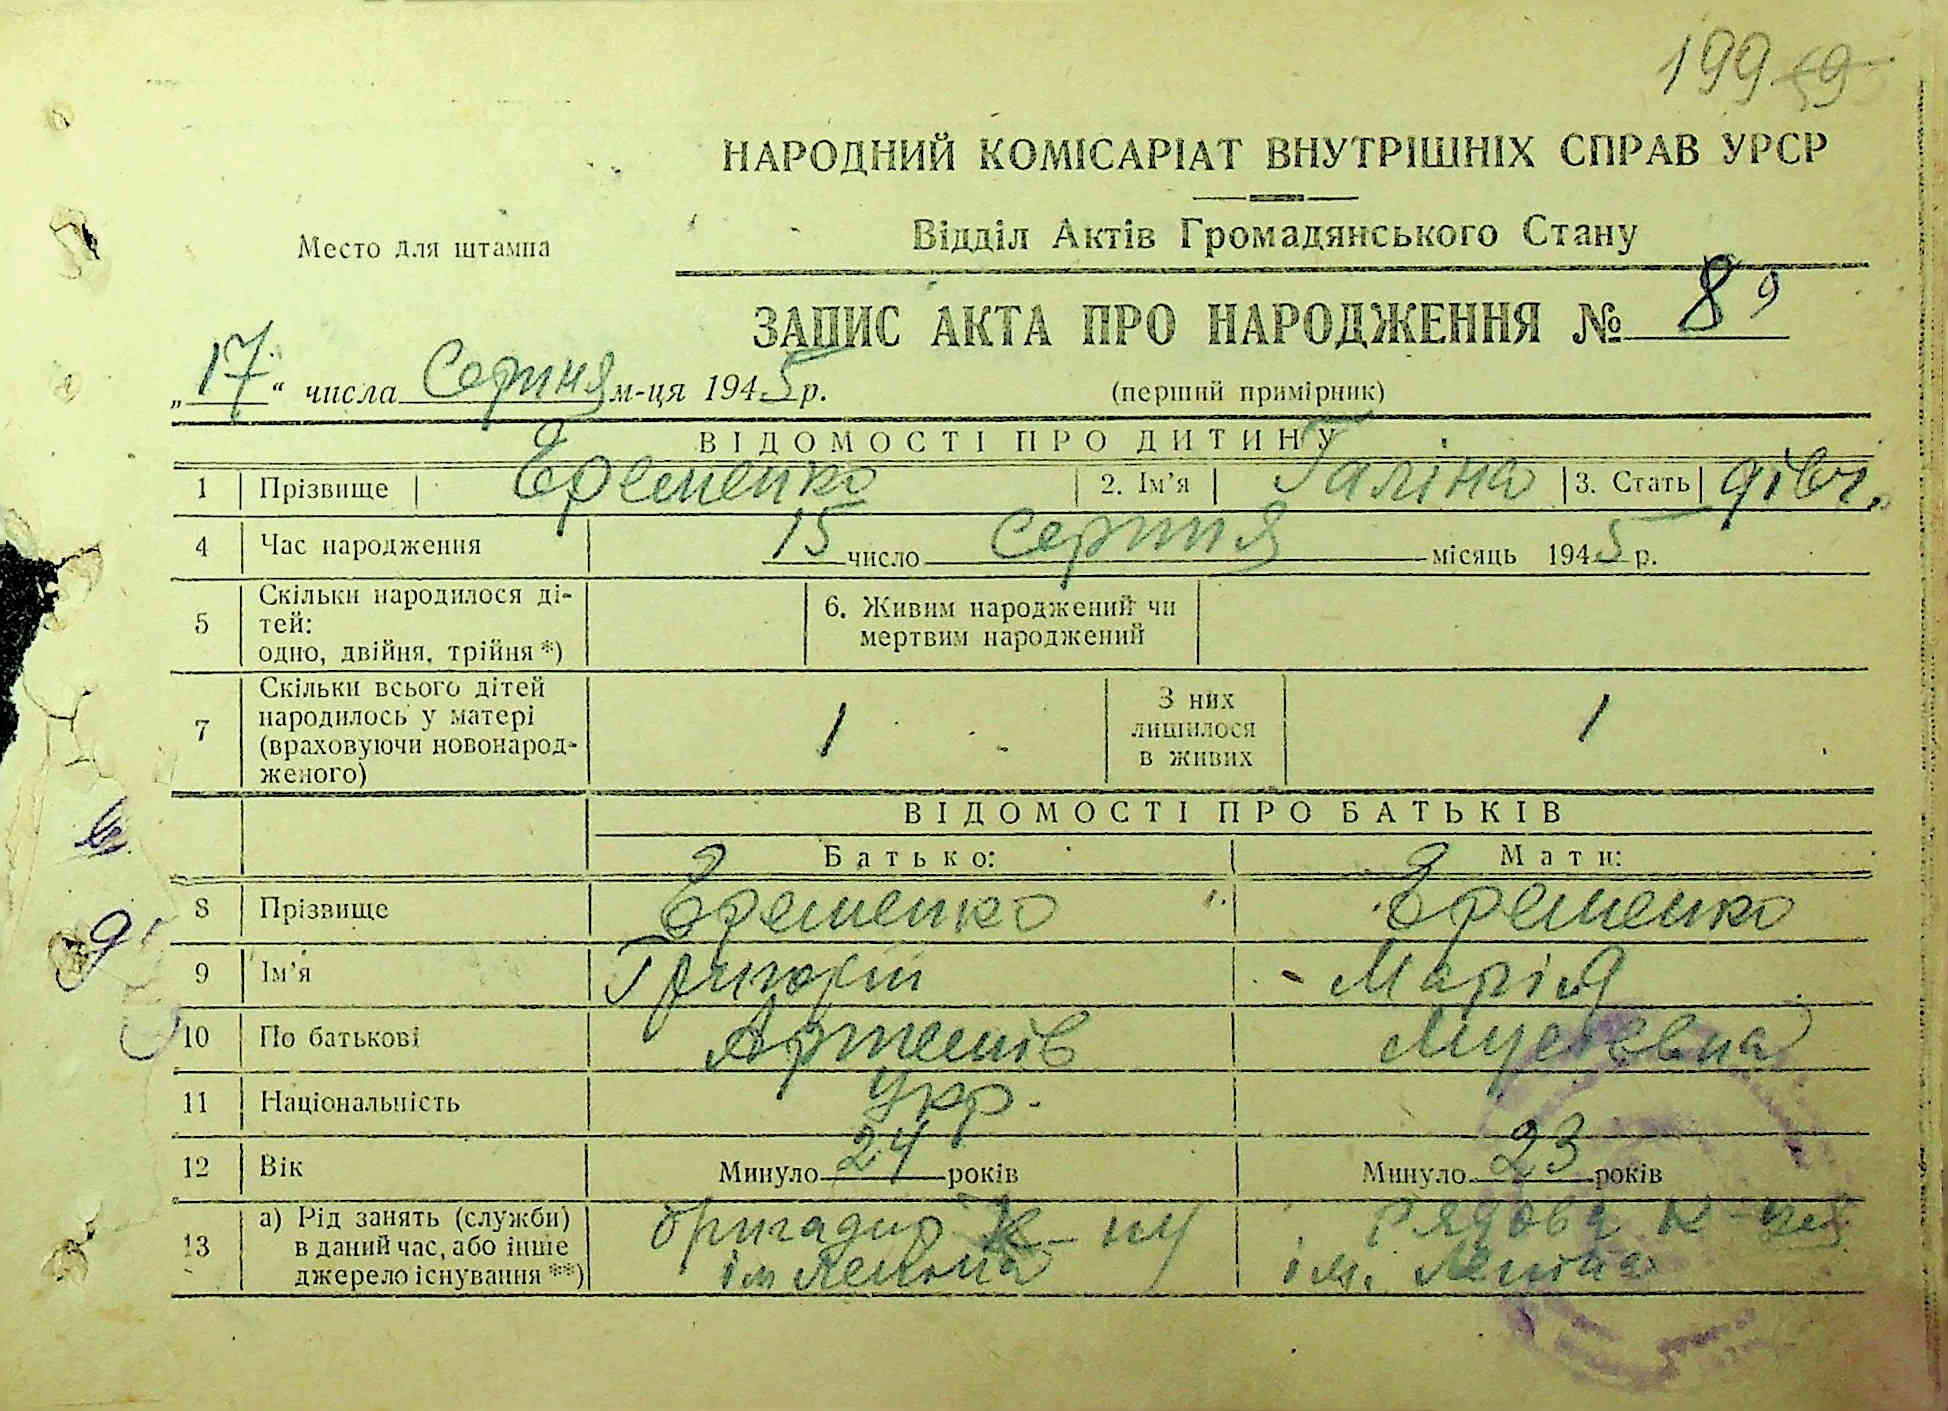 199
НАРОДНИЙ КОМІСАРІАТ ВНУТРІШНІХ СПРАВ УРСР
Место для штампа
Відділ Актів Громадянського Стану
ЗАПИС АКТА ПРО НАРОДЖЕННЯ № 89
„17“ числа Серпня м-ця 1945 р. (перший примірник)
ВІДОМОСТІ ПРО ДИТИНУ
1 Прізвище Єременко 2. Ім’я Галіна 3. Стать дівч.
4 Час народження 15 число серпня місяць 1945 р.
5 Скільки народилося ді-
тей:
одно, двійня, трійня *)
6. Живим народжений чи
мертвим народжений
7 Скільки всього дітей
народилось у матері
(враховуючи новонарод-
женого)
1
З них
лишилося
в живих
1
ВІДОМОСТІ ПРО БАТЬКІВ
Батько: Мати:
8 Прізвище Єременко Єременко
9 Ім’я Григорій Марія
10 По батькові Артемів Мусіевна
11 Національність укр.
12 Вік Минуло 24 років Минуло 23 років
13 а) Рід занять (служби)
в даний час, або інше
джерело існування **)
бригадир к-пу
ім Леніна
рядова к-пу
ім. Леніна